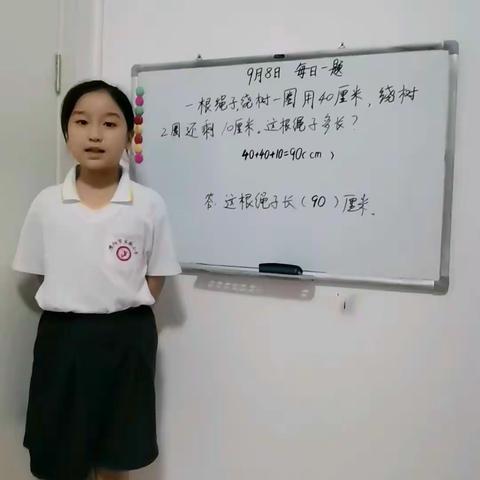 9月8日 每日一题
一根绳子绕树一圈用40厘米,绕树
2圈还剩10厘米。这根绳子多长?
40+40+10=90(cm)
答:这根绳子长(90)厘米。